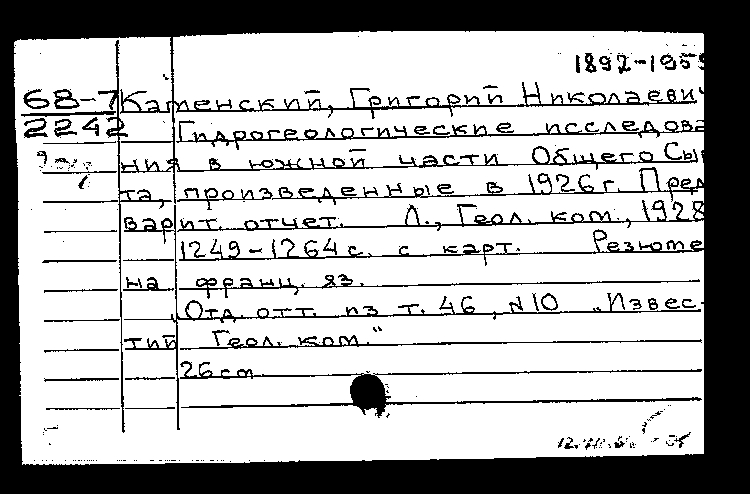 1892-195
68-7 Каменский, Григорий Николаевич
2242 Гидрогеологические исследова
ния в южной части Общего Сыр
та, произведенные в 1926 г. Пред
варит. отчет. Л., Геол. ком., 1928
1249-1264 с. с карт. Резюме
на франц. яз.
„Отд. отт. из т. 46, N10 „Извес-
тий Геол. ком."
26 cm